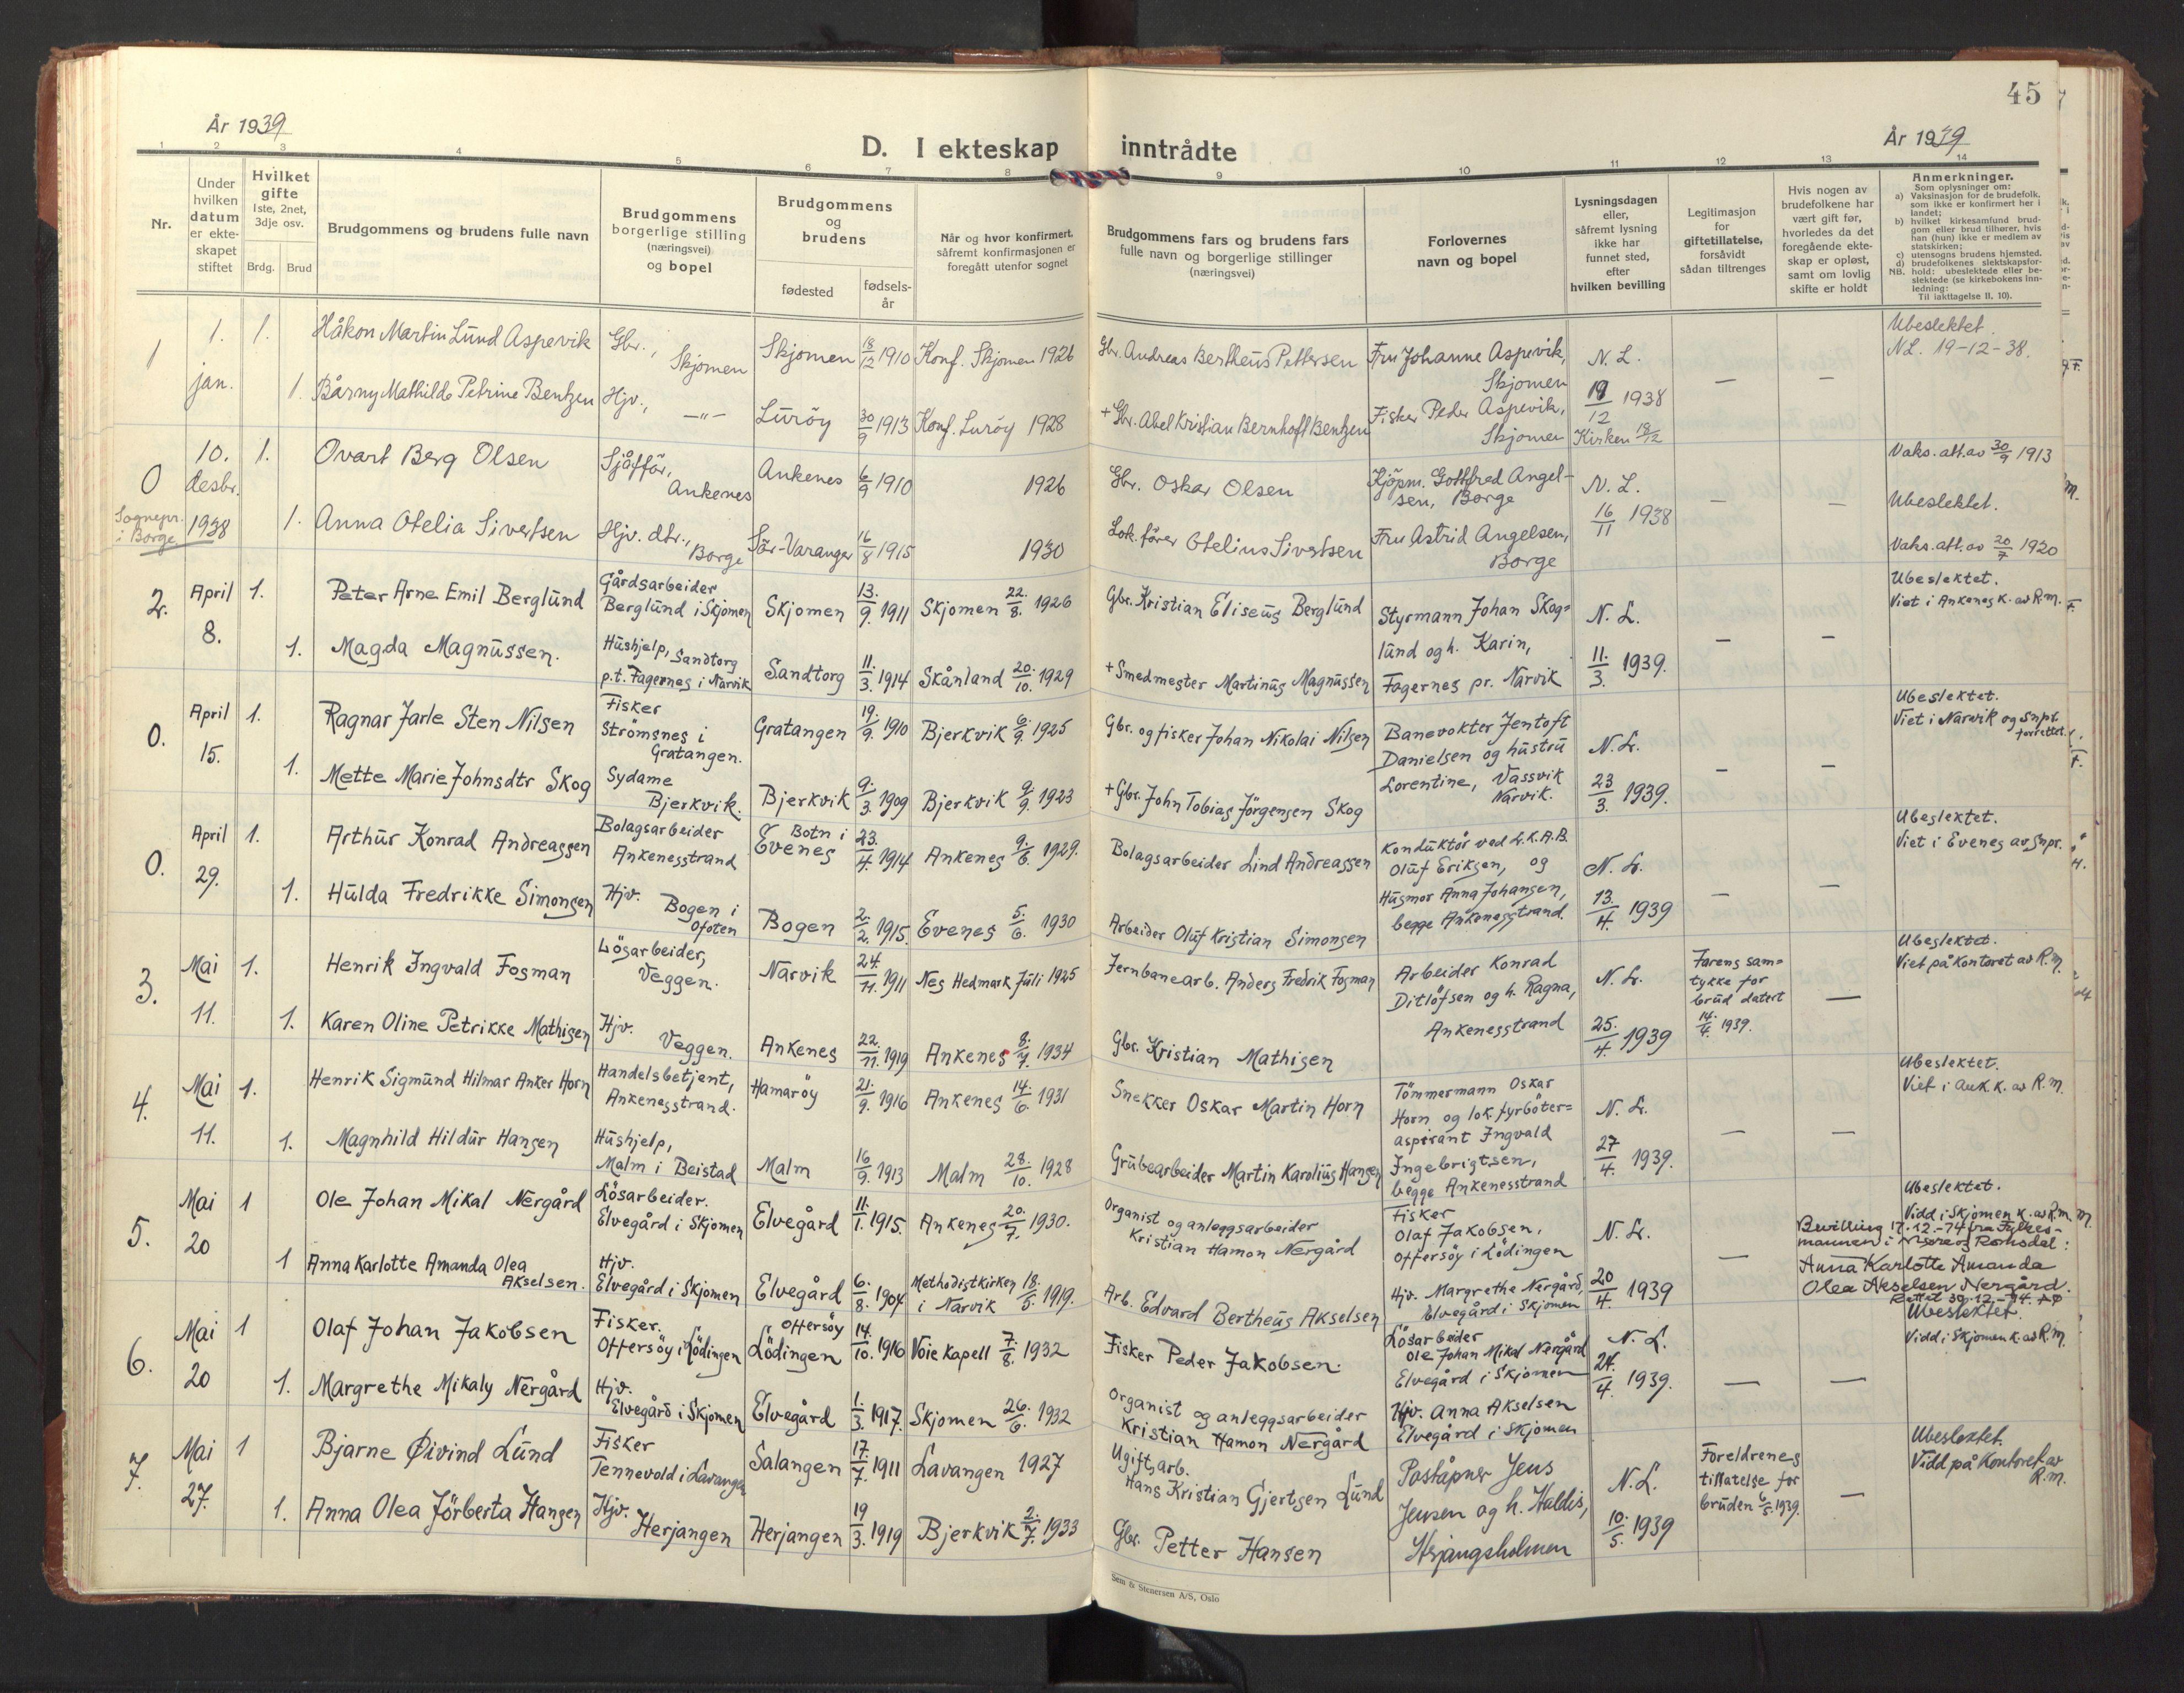 45
År 1939
År 1939
D. I ekteskap inntrådte
1 2 3 4 5 6 7 8 9 10 11 12 13 14
Nr.
Under hvilken datum er ekte-skapet stiftet
Hvilket gifte
1ste, 2net, 3dje osv.
Brdg. Brud
Brudgommens og brudens fulle navn
Brudgommens borgerlige stilling (næringsvei) og bopel
Brudgommens og brudens
fødested
fødsels-år
Når og hvor konfirmert, såfremt konfirmasjonen er foregått utenfor sognet
Brudgommens fars og brudens fars fulle navn og borgerlige stillinger (næringsvei)
Forlovernes navn og bopel
Lysningsdagen eller, såfremt lysning ikke har funnet sted, efter hvilken bevilling
Legitimasjon for giftetillatelse, forsåvidt sådan tiltrenges
Hvis nogen av brudefolkene har vært gift før, hvorledes da det foregående ekte-skap er opløst, samt om lovlig skifte er holdt
Anmerkninger.
Som oplysninger om:
a) Vaksinasjon for de brudefolk, som ikke er konfirmert her i landet;
b) hvilket kirkesamfund brud-gom eller brud tilhører, hvis han (hun) ikke er medlem av statskirken;
c) utensogns brudens hjemsted.
d) brudefolkenes slektskapsfor-hold: ubeslektede eller be-slektede (se kirkebokens inn-ledning:
NB. Til iakttagelse II. 10).
1 1. jan. 1. Håkon Martin Lund Aspevik Gbr., Skjomen Skjomen 18/12 1910 Konf. Skjomen 1926 Gbr. Andreas Bertheus Pettersen Fru Johanne Aspevik, Skjomen N. L. Ubeslektet. NL. 19-12-38.
1. Bårny Mathilde Petrine Bentzen Hjv., —"— Luröy 30/9 1913 Konf. Luröy 1928 + Gbr. Abel Kristian Bernhoft Bentzen Fisker Peder Aspevik, Skjomen 19/12 1938 Kirken 18/12 — —
0 Sognepr. i Borge 10. desbr. 1938 1. Ovart Berg Olsen Sjåfför, Ankenes Ankenes 6/9 1910 1926 Gbr. Oskar Olsen Kjöpm. Gottfred Angel-sen, Borge N. L. Vaks. att. av 30/9 1913
1. Anna Otelia Sivertsen Hjv. dtr., Borge Sör-Varanger 16/8 1915 1930 Lok. förer Otelius Sivertsen Fru Astrid Angelsen, Borge 16/11 1938 — — Ubeslektet. Vaks. att. av 20/7 1920
2. April 8. 1. Peter Arne Emil Berglund Gårdsarbeider Berglund i Skjomen Skjomen 13./9. 1911 Skjomen 22./8. 1926 Gbr. Kristian Eliseus Berglund Styrmann Johan Skog= N. L. Ubeslektet. Viet i Ankenes K. av R.m.
1. Magda Magnussen. Hushjelp, Sandtorg p.t. Fagernes i Narvik Sandtorg 11./3. 1914 Skånland 20./10. 1929 + Smedmester Martinus Magnussen lund og h. Karin, Fagernes pr. Narvik 11./3. 1939. — —
0. April 15. 1. Ragnar Jarle Sten Nilsen Fisker Strömsnes i Gratangen. Gratangen 19./9. 1910 Bjerkvik 6./9. 1925 Gbr. og fisker Johan Nikolai Nilsen Banevokter Jentoft Danielsen og hustru N. L. Ubeslektet. Viet i Narvik og snpr. forrettet.
1. Mette Marie Johnsdtr Skog Sydame Bjerkvik. Bjerkvik 9./3. 1909 Bjerkvik 9./9. 1923 + Gbr. John Tobias Jörgensen Skog Lorentine, Vassvik Narvik. 23/3. 1939. — —
0. April 29. 1. Arthur Konrad Andreassen Bolagsarbeider Ankenesstrand Botn i Evenes 23./4. 1914 Ankenes 9./6. 1929. Bolagsarbeider Lind Andreassen Konduktör ved L.K.A.B. Oluf Eriksen, og N. L. Ubeslektet. Viet i Evenes av Snpr.
1. Hulda Fredrikke Simonsen Hjv. Bogen i Ofoten Bogen 2./2. 1915. Evenes 5./6. 1930 Arbeider Oluf Kristian Simonsen Husmor Anna Johansen, begge Ankenesstrand 13./4. 1939 — —
3. Mai 11. 1. Henrik Ingvald Fosman Lösarbeider, Veggen. Narvik 24./11. 1911 Nes Hedmark Juli 1925 Jernbanearb. Anders Fredrik Fosman Arbeider Konrad Ditlöfsen og h. Ragna, Ankenesstrand N. L. Farens sam=tykke for brud datert 14./4. 1939. — Ubeslektet. Viet på Kontoret av R.m.
1. Karen Oline Petrikke Mathisen Hjv. Veggen. Ankenes 22./11. 1919 Ankenes 8./7. 1934 Gbr. Kristian Mathisen 25./4. 1939
4. Mai 11. 1. Henrik Sigmund Hilmar Anker Horn Handelsbetjent, Ankenesstrand. Hamaröy 21./9. 1916 Ankenes 14./6. 1931 Snekker Oskar Martin Horn Tömmermann Oskar Horn og lok.fyrböter=aspirant Ingvald N. L. Ubeslektet. Viet i Ank K. av R.m.
1. Magnhild Hildur Hansen Hushjelp, Malm i Beistad Malm 16/9. 1913 Malm 28./10. 1928 Grubearbeider Martin Karolius Hansen Ingebrigtsen, begge Ankenesstrand 27/4. 1939. — —
5. Mai 20 1 Ole Johan Mikal Nergård Lösarbeider. Elvegård i Skjomen Elvegård 11./1. 1915. Ankenes 20./7. 1930. Organist og anleggsarbeider Kristian Hamon Nergård Fisker Olaf Jakobsen, Offersöy i Lödingen N. L. Ubeslektet. Vidd i Skjomen K. av R.m.
1 Anna Karlotte Amanda Olea Akselsen. Hjv. Elvegård i Skjomen Elvegård 6./8. 1904 Methodistkirken i Narvik 18./5. 1919. Arb. Edvard Bertheus Akselsen Hjv. Margrethe Nergård, Elvegård i Skjomen 20/4. 1939 — Bevilling 17.12.-74 fra Fylkes-mannen i Møre og Romsdal: Anna Karlotte Amanda Olea Akselsen Nergård. Rettet 30.12.-74.
6. Mai 20 1 Olaf Johan Jakobsen Fisker. Offersöy i Lödingen Offersöy Lödingen 14./10. 1916 Voie Kapell 7./8. 1932 Fisker Peder Jakobsen. Lösarbeider Ole Johan Mikal Nergård Elvegård i Skjomen N. L. Ubeslektet. Vidd i Skjomen K. av R.m.
1. Margrethe Mikaly Nergård Hjv. Elvegård i Skjomen Elvegård 1./3. 1917. Skjomen 26./6. 1932 Organist og anleggsarbeider Kristian Hamon Nergård Hjv. Anna Akselsen Elvegård i Skjomen 24./4. 1939. — —
7. Mai 27. 1 Bjarne Øivind Lund Fisker Tennevold i Lavangen Salangen 17./7. 1911 Lavangen 1927 Ugift arb. Hans Kristian Gjertsen Lund Poståpner Jens N. L. Foreldrenes tillatelse for bruden 6/5. 1939. — Ubeslektet. Vidd på Kontoret av R.m.
1. Anna Olea Jörberta Hansen Hjv. Herjangen Herjangen 19/3. 1919 Bjerkvik 2./7. 1933 Gbr. Petter Hansen Jensen og h. Haldis, Herjangsholmen 10./5. 1939
Sem & Stenersen A/S, Oslo